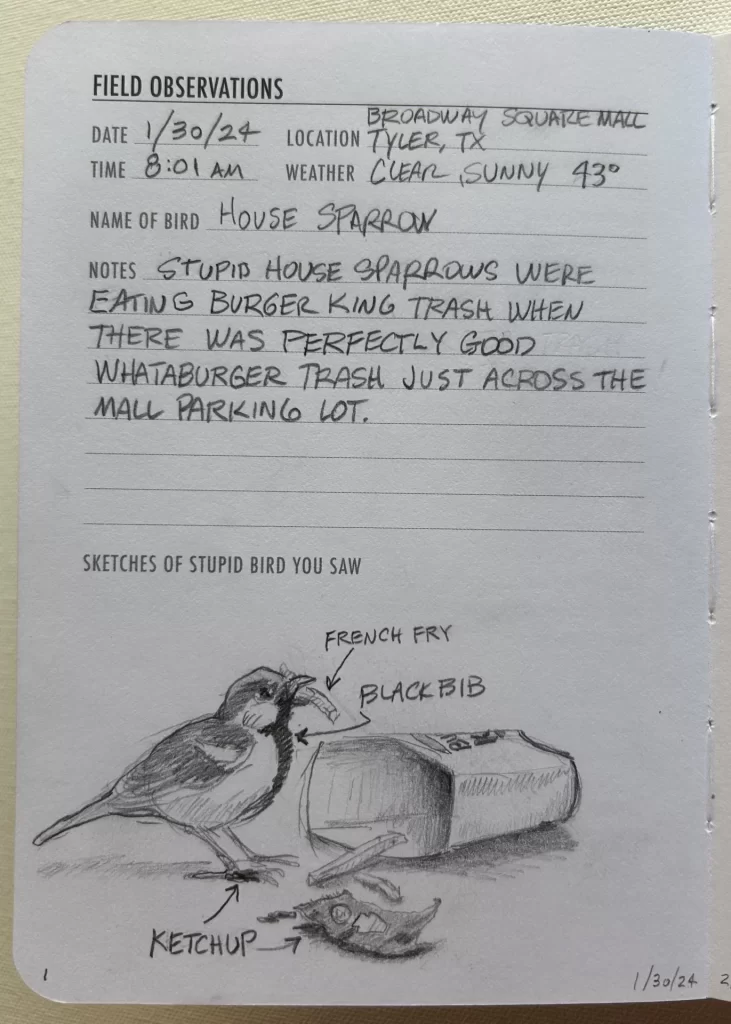 FIELD OBSERVATIONS
DATE 1/30/24 LOCATION BROADWAY SQUARE MALL
TYLER, TX
TIME 8:01 AM WEATHER CLEAR, SUNNY 43°
NAME OF BIRD HOUSE SPARROW
NOTES STUPID HOUSE SPARROWS WERE
EATING BURGER KING TRASH WHEN
THERE WAS PERFECTLY GOOD
WHATABURGER TRASH JUST ACROSS THE
MALL PARKING LOT.
SKETCHES OF STUPID BIRD YOU SAW
FRENCH FRY
BLACK BIB
KETCHUP
1
1/30/24
2